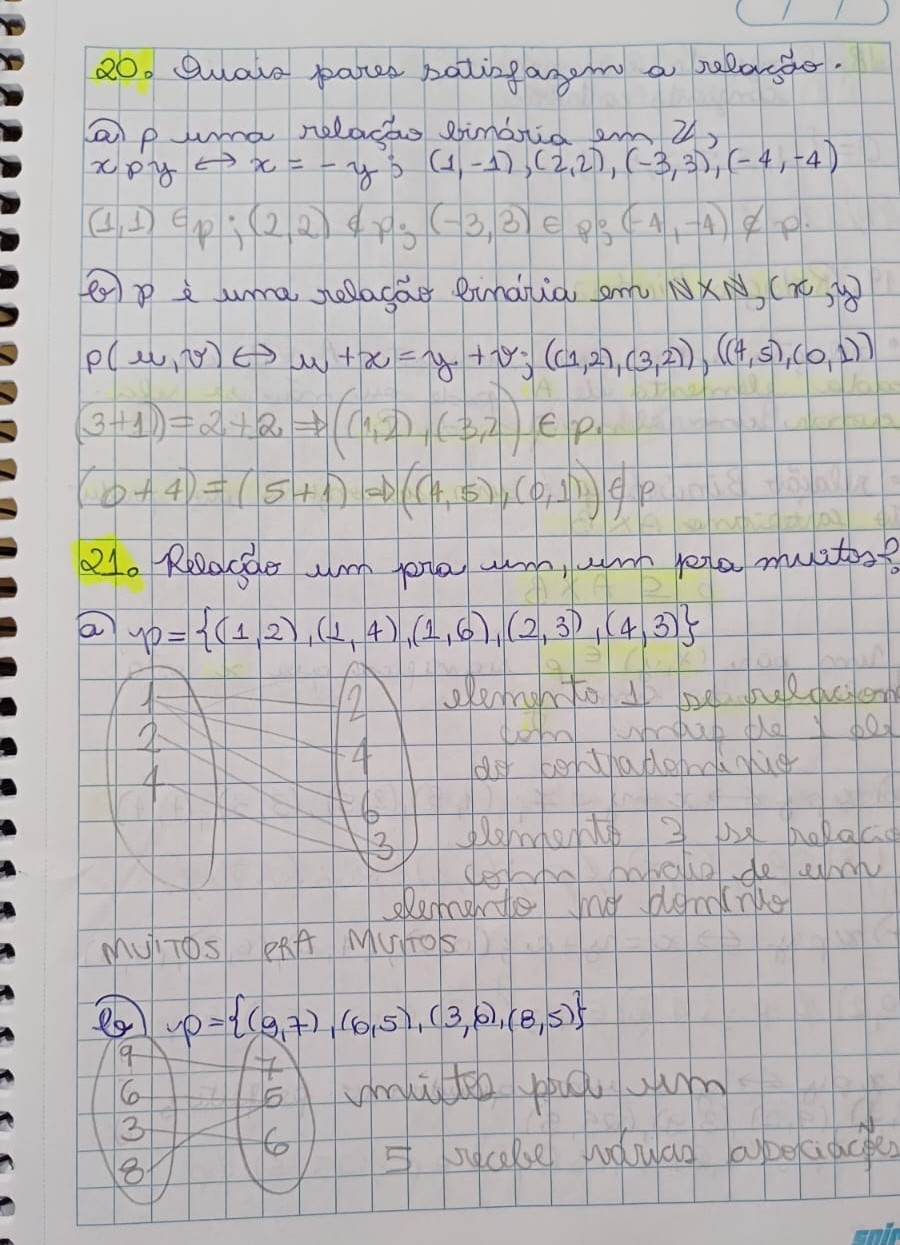 20. Quais pares satisfazem a relação.
a) ρ uma relação binária em ℤ,
x ρ y ↔ x = - y ; (1,-1), (2,2), (-3,3), (-4,-4)
(1,1) ∈ ρ ; (2,2) ∉ ρ ; (-3,3) ∈ ρ ; (-4,-4) ∉ ρ.
b) ρ é uma relação binária em ℕ×ℕ, (x,y)
ρ(u,v) ↔ u + x = y + v ; ((1,2),(3,2)), ((4,5),(0,1))
(3+1) = 2+2 ⇒ ((1,2),(-3,2) ∈ ρ.
(0+4) = (5+1) ⇒ ((4,5),(0,1)) ∉ ρ
21. Relação um pra um, um pra muitos?
a) ρ = {(1,2), (1,4), (1,6), (2,3), (4,3)}
1 2 elemento 1 se relacion
2 4 com mais de 1 ele
4 6 do contradomínio
3 elemento 3 se relacio
com mais de um
elemento no domínio
MUITOS PRA MUITOS
b) ρ = {(9,7), (6,5), (3,6), (8,5)}
9 7
6 5 muitos pra um
3 6
8 5 recebe várias associações
spir